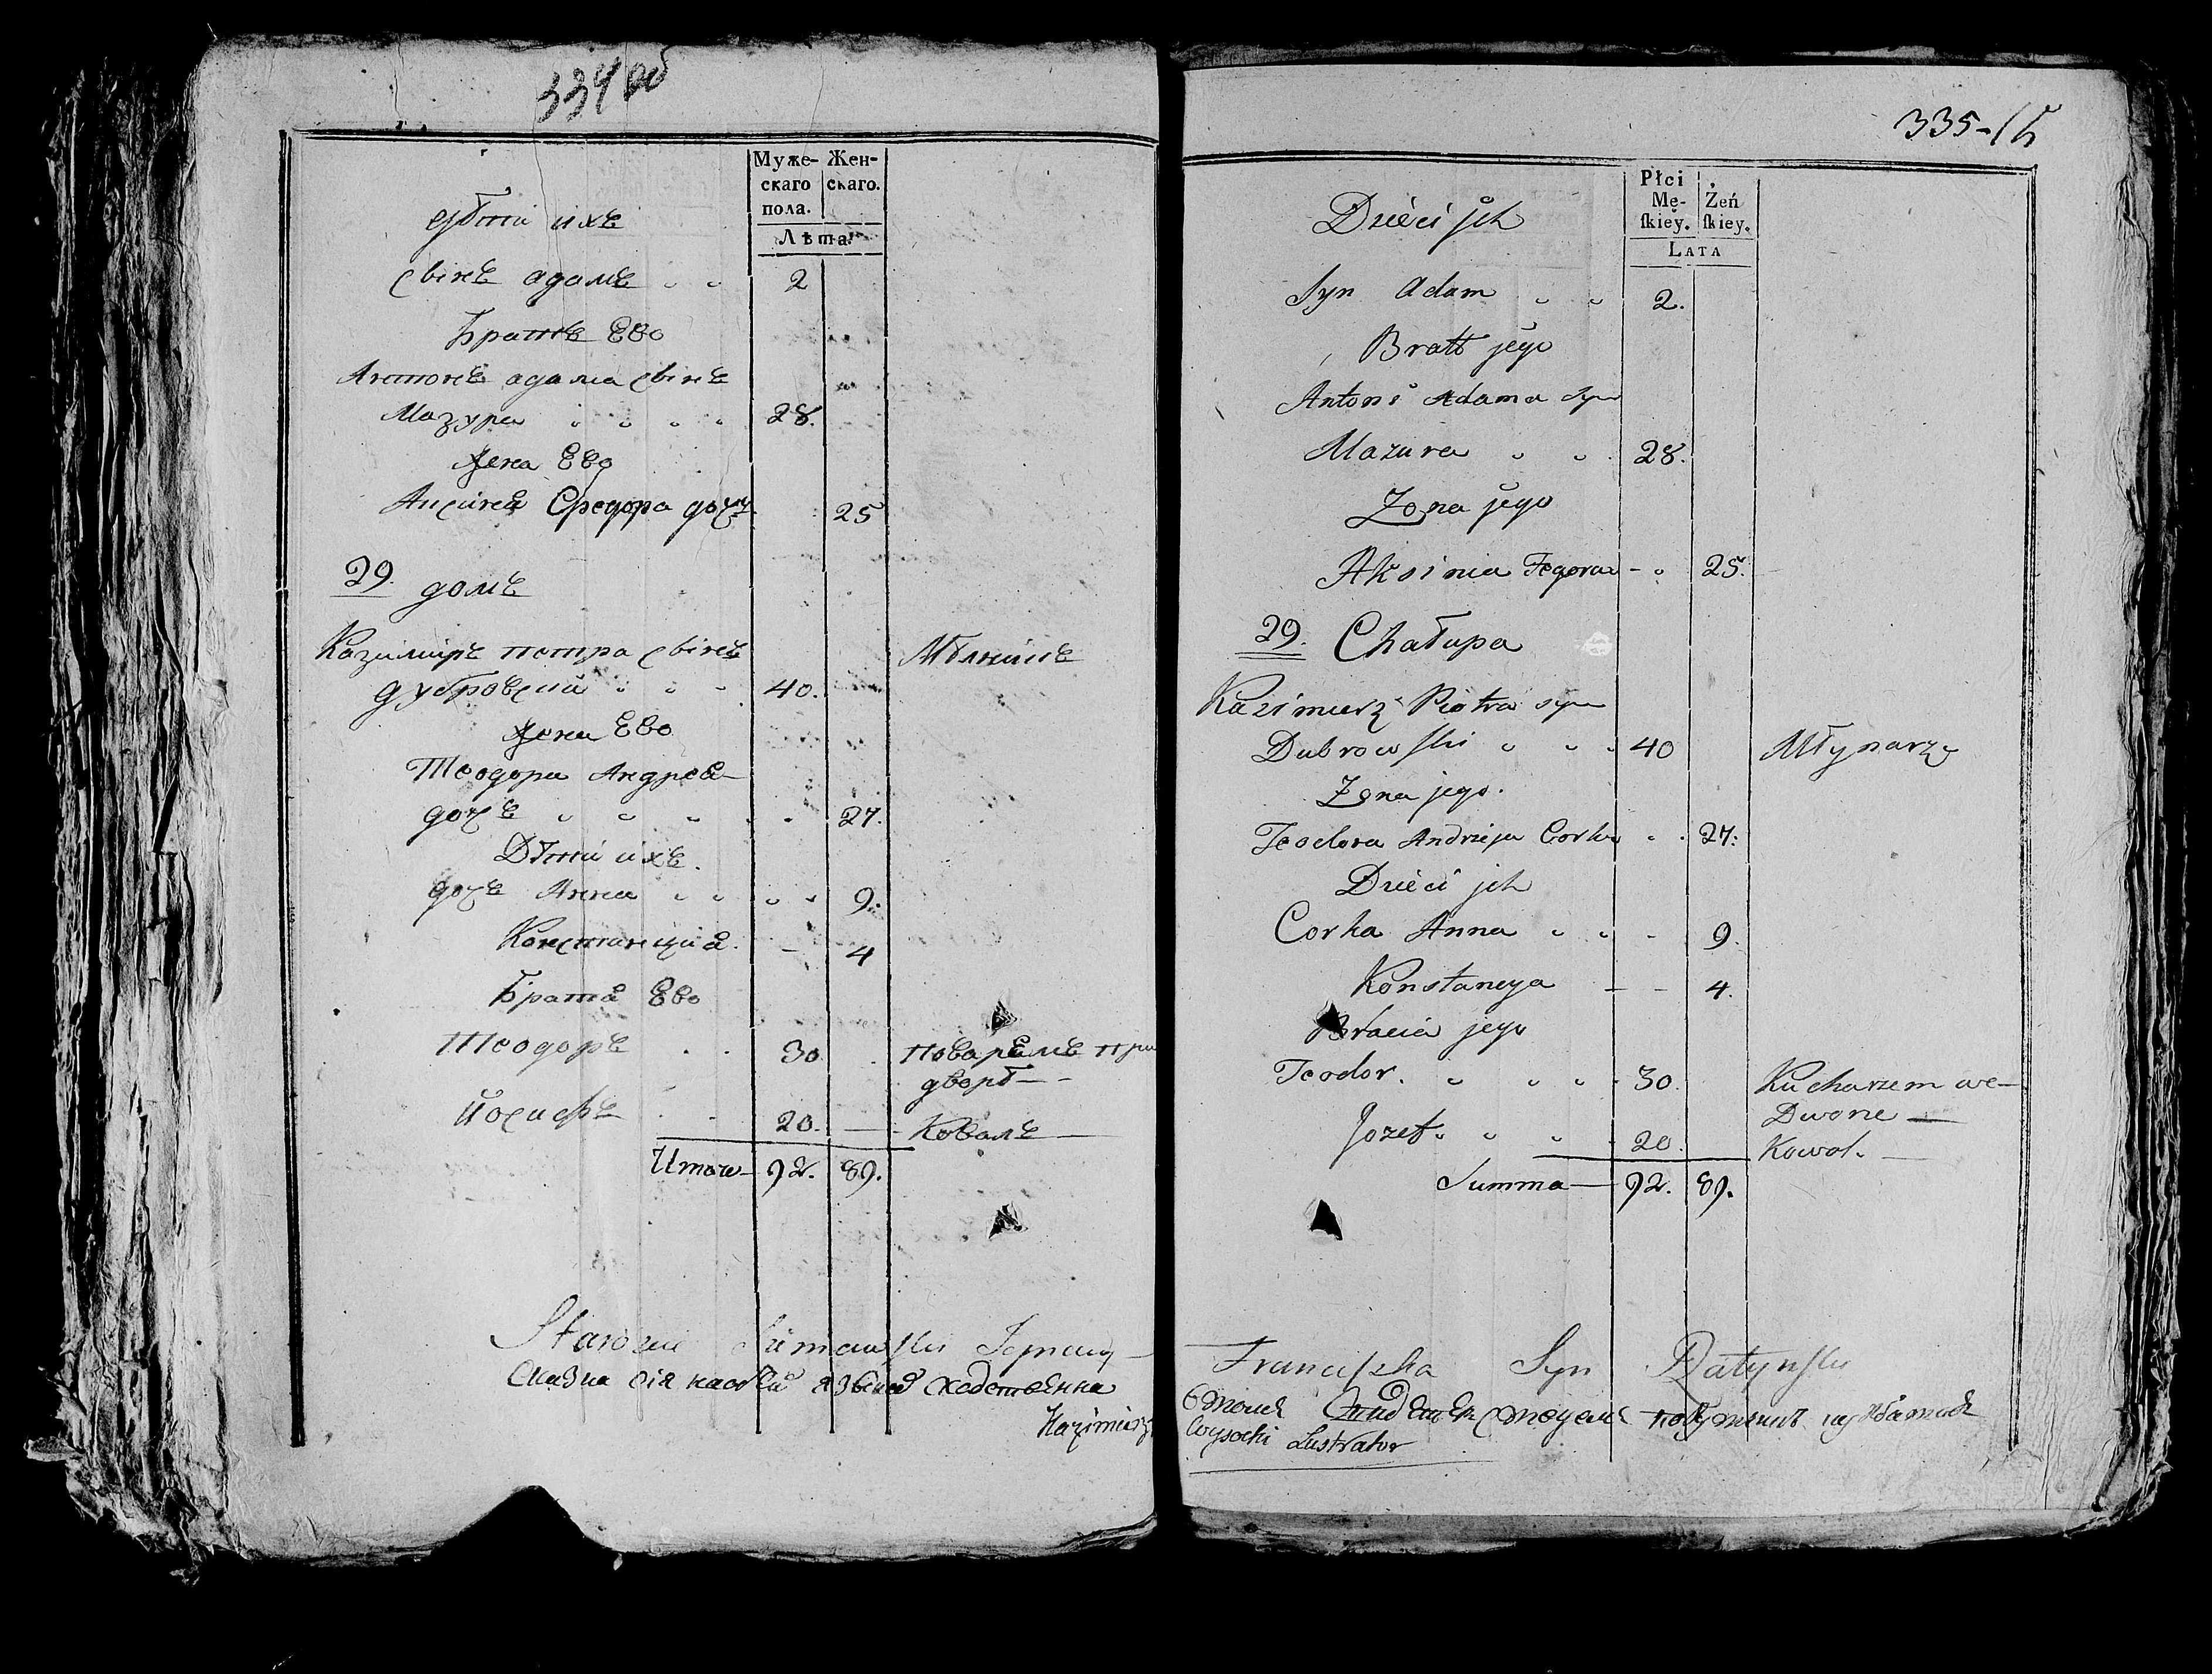 334 об
Муже-
скаго
пола.
Жен-
скаго.
Лѣта
Дѣти ихъ
Сынъ Адамъ 2
Братъ Ево
Антонъ Адама Сынъ
Мазура 28.
Жена Ево
Аксиния Федора дочь 25
29. домъ
Казимиръ Петра Сынъ
Дубровский 40.
Мѣлникъ
Жена Ево
Теодора Андрея
дочь 27.
Дѣти ихъ.
дочь Анна 9.
Констанция. - 4
Братя Ево
Теодоръ 30.
Поваремъ при
дворѣ
Йосифъ 20.
Коваль
Итого 92. 89.
Starosta Sepnany
Сказка сія насвой
Kazimierz
335-
Płci
Mę-
ſkiey.
Żeń
ſkiey.
LATA
Dzieci jch
Syn Adam 2.
Bratt jego
Antoni Adama Syn
Mazura 28.
Zona jego
Aksinia Fegora - 25.
29. Chałupa
Kazimierz Piotra syn
Dubrowſki 40 Młynarz
Zona jego.
Teodora Andrzeja Corka 27.
Dzieci jch
Corka Anna 9.
Konstancya - - 4.
Bracia jego
Teodor. 30. Kucharzem we
Dworze
Jozef 20. Kowal.
Summa 92. 89.
Franciſzka Syn Ratynſki
Wysocki Lustrator